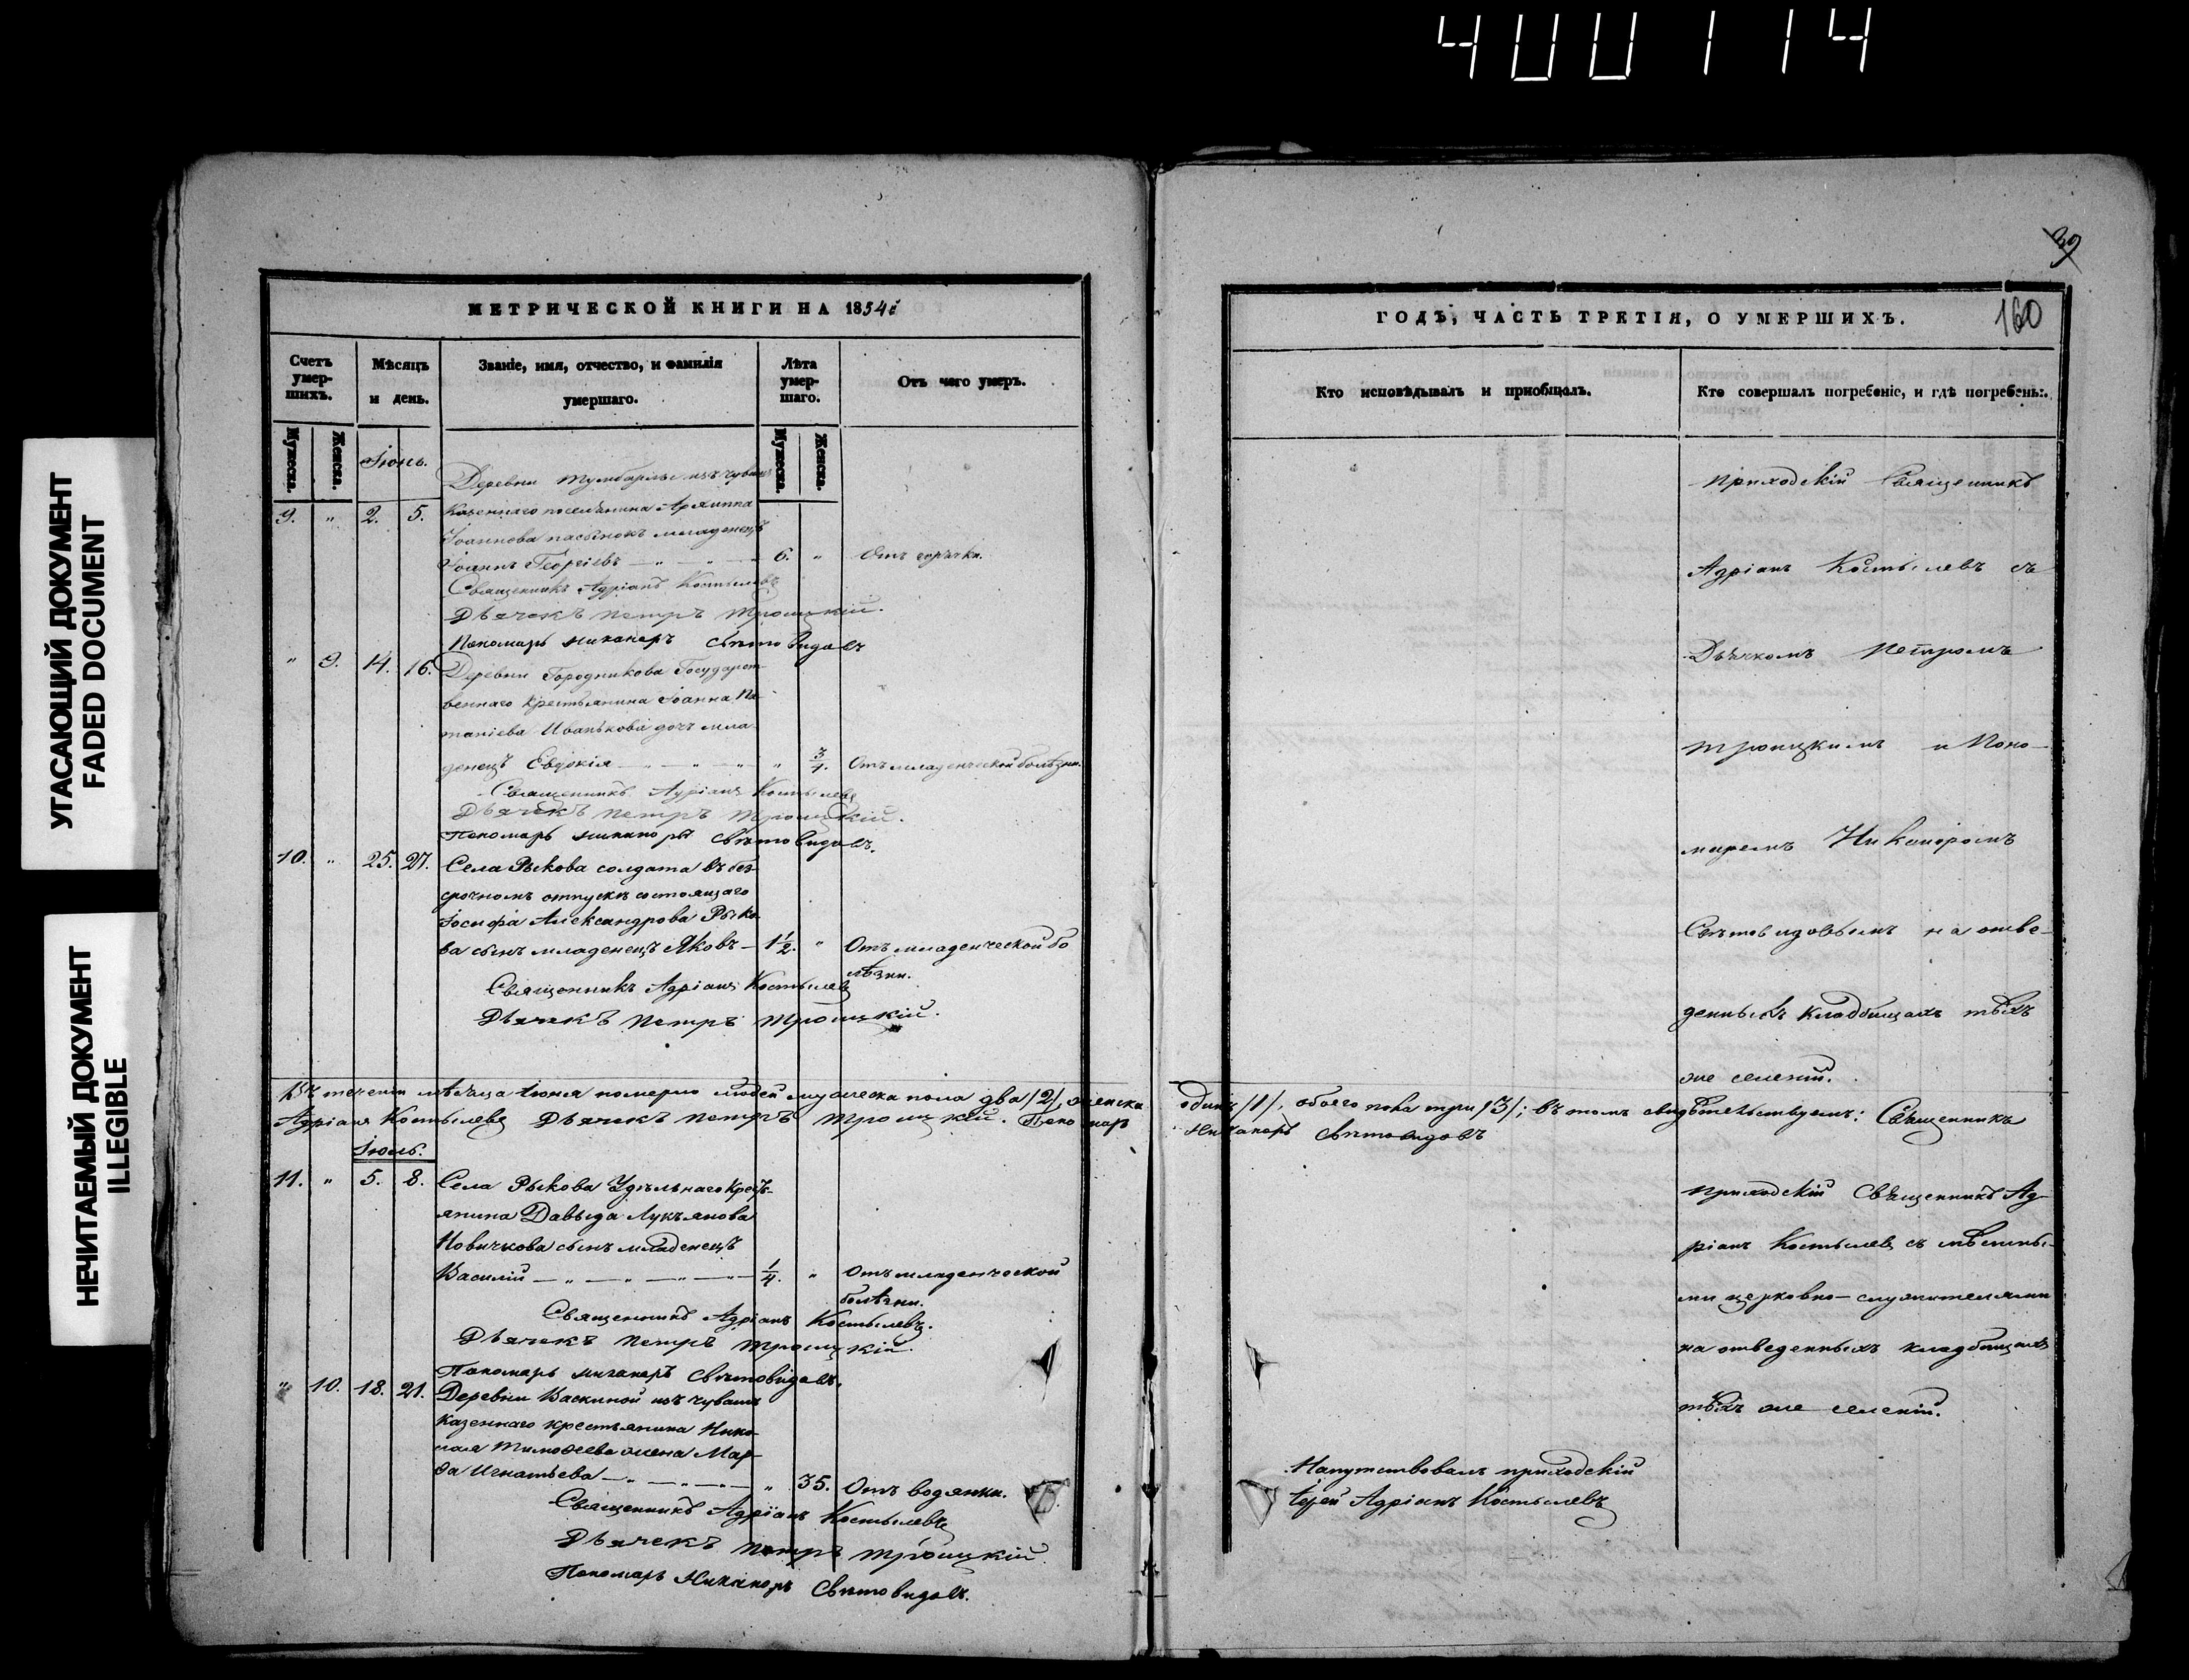 400114
УГАСАЮЩИЙ ДОКУМЕНТ
FADED DOCUMENT
НЕЧИТАЕМЫЙ ДОКУМЕНТ
ILLEGIBLE
МЕТРИЧЕСКОЙ КНИГИ НА 1854й
Счетъ умер-шихъ.
Мужеска.
Женска.
Мѣсяцъ и день.
Званіе, имя, отчество, и фамилія умершаго.
Лѣта умер-шаго.
Мужеска.
Женска.
Отъ чего умеръ.
Іюнь.
Деревни Тумбарлы изъ чувашъ
9. " 2. 5. Казеннаго поселянина Архиппа
Іоаннова пасынокъ младенецъ
Іоаннъ Георгіевъ — " — " — 6. " Отъ горячки.
Священникъ Адріанъ Костылевъ
Дьячекъ Петръ Троицкій.
Пономарь Никаноръ Свѣтовидовъ
" 9. 14. 16. Деревни Городникова Государст-
веннаго крестьянина Іоанна
Иванькова дочь мла-
денецъ Евдокія — " — " — " " 3/4. Отъ младенческой болѣзни.
Священникъ Адріанъ Костылевъ
Дьячекъ Петръ Троицкій.
Пономарь Никаноръ Свѣтовидовъ.
10. " 25. 27. Села Рыкова солдата въ без-
срочномъ отпускѣ состоящаго
Іосифа Александрова Рыко-
ва сынъ младенецъ Яковъ — 1 1/2. " Отъ младенческой бо
лѣзни.
Священникъ Адріанъ Костылевъ
Дьячекъ Петръ Троицкій.
Въ теченіи мѣсяца Іюня померло людей мужеска пола два /2/, женска
Адріанъ Костылевъ Дьячекъ Петръ Троицкій. Пономарь
Іюль.
11. " 5. 8. Села Рыкова Удѣльнаго крестъ-
янина Давыда Лукъянова
Новичкова сынъ младенецъ
Василій — " — " — " — 1/4. " Отъ младенческой
болѣзни.
Священникъ Адріанъ Костылевъ.
Дьячекъ Петръ Троицкій.
Пономарь Никаноръ Свѣтовидовъ.
" 10. 18. 21. Деревни Васкиной изъ чувашъ
казеннаго крестьянина Нико-
лая Тимофеева жена Мар-
фа Игнатьева — " — " — " 35. Отъ водянки.
Священникъ Адріанъ Костылевъ
Дьячекъ Петръ Троицкій.
Пономарь Никаноръ Свѣтовидовъ.
39
ГОДЪ, ЧАСТЬ ТРЕТІЯ, О УМЕРШИХЪ.
160
Кто исповѣдывалъ и пріобщалъ.
Кто совершалъ погребеніе, и гдѣ погребены.
Приходскій Священникъ
Адріанъ Костылевъ съ
Дьячкомъ Петромъ
Троицкимъ и Поно-
маремъ Никаноромъ
Свѣтовидовымъ на отве-
денныхъ кладбищахъ тѣхъ
же селеній.
одинъ /1/, обоего пола три /3/; въ томъ свидѣтельствуемъ: Священникъ
Никаноръ Свѣтовидовъ
Приходскій Священникъ Ад-
ріанъ Костылевъ съ мѣстны-
ми церковно-служителями
на отведенныхъ кладбищахъ
тѣхъ же селеній.
Напутствовалъ приходскій
Іерей Адріанъ Костылевъ